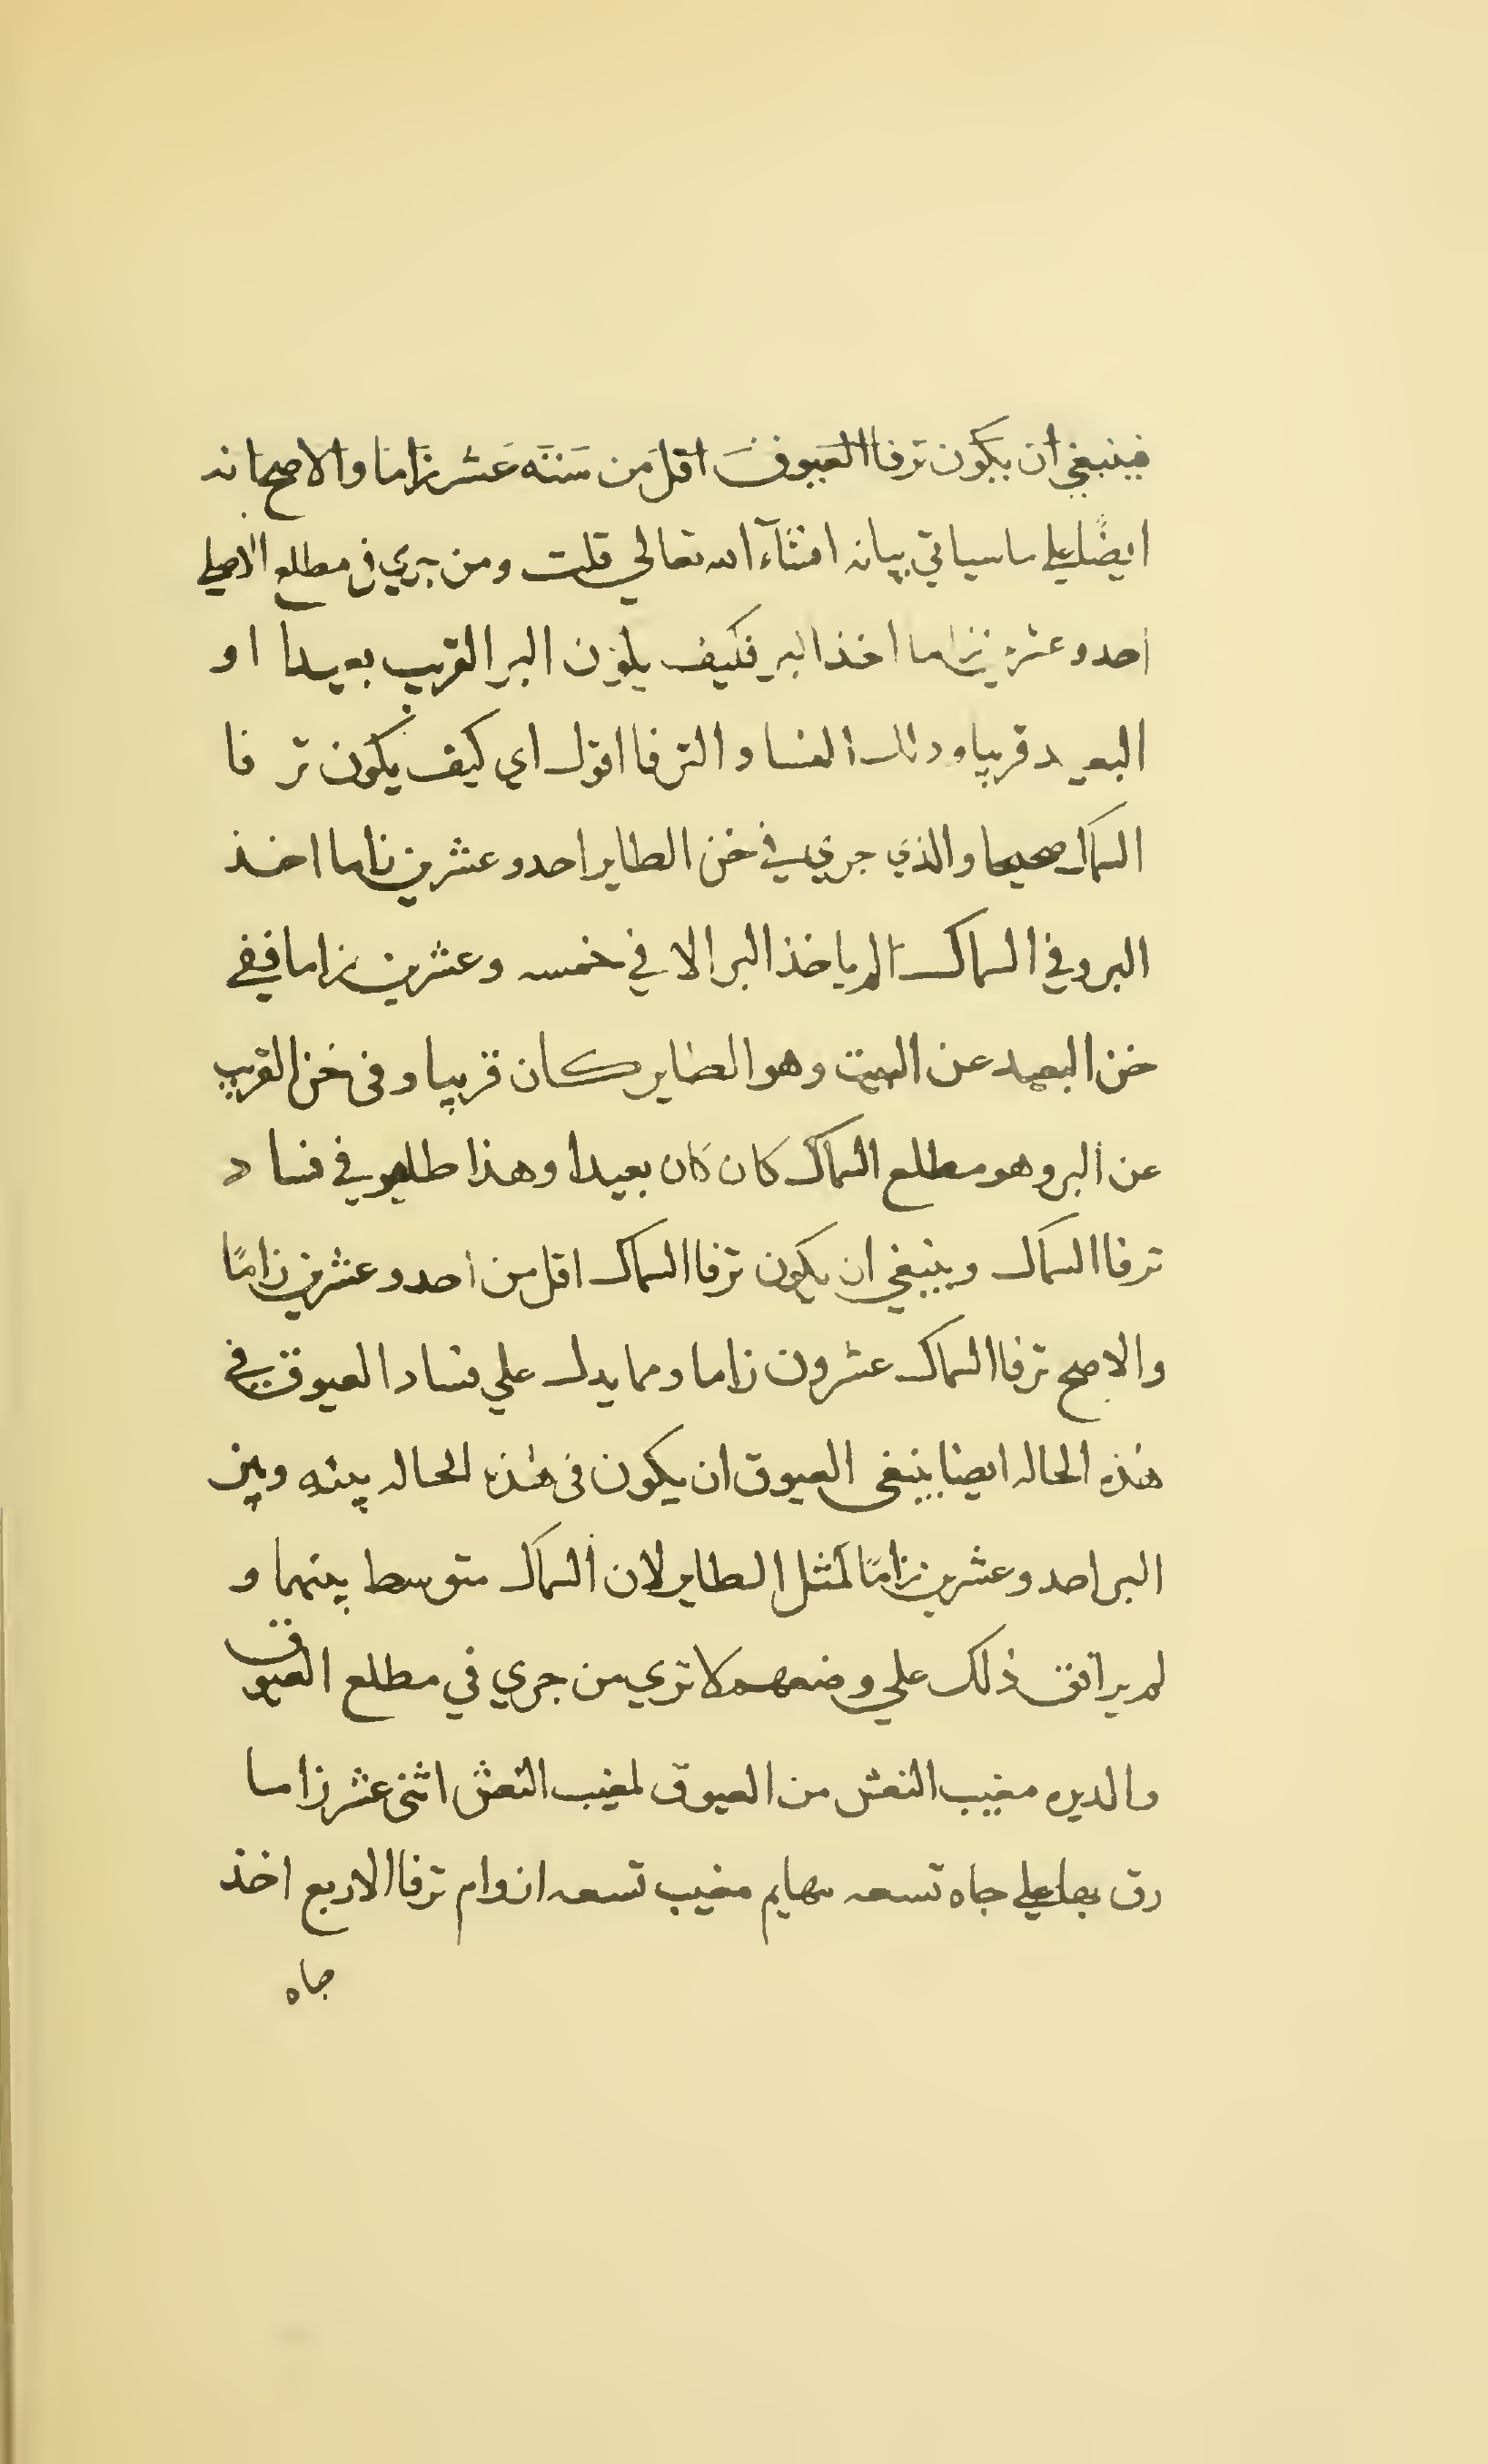 فينبغي ان يكون ترفا العيوق اقل من ستة عشر زاما والاصح انه
ايضا علي ما سياتي بيانه انشآء الله تعالي قلت ومن جري في مطلع الاصلي
احد وعشرين زاما اخذ البر فكيف يكون البر القريب بعيدا او
البعيد قريبا وذلك الفساد الترفا اقول اي كيف يكون تر فا
السماك صحيحا والذي جري في خن الطاير احد وعشرين زاما اخذ
البر وفي السماك لم ياخذ البر الا في خمسه وعشرين زاما ففي
خن البعيد عن البيت وهو الطاير كان قريبا وفي خن القريب
عن البر وهو مطلع السماك كان كان بعيدا وهذا في فساد
ترفا السماك وينبغي ان يكون ترفا السماك اقل من احد وعشرين زامًا
والاصح ترفا السماك عشرون زاما ومما يدل علي فساد العيوق في
هذه الحاله ايضا ينبغي العيوق ان يكون في هذه الحاله بينه وبين
البر احد وعشرين زامًا كمثل الطاير لان السماك متوسط بينهما و
لم يوافق ذلك علي وضعهم الا تري من جري في مطلع العيوق
والديره مغيب النعش من العيوق لمغيب النعش اثنى عشر زاما
علي جاه تسعه مغيب تسعه ازوام ترفا الاربع اخذ
جاه